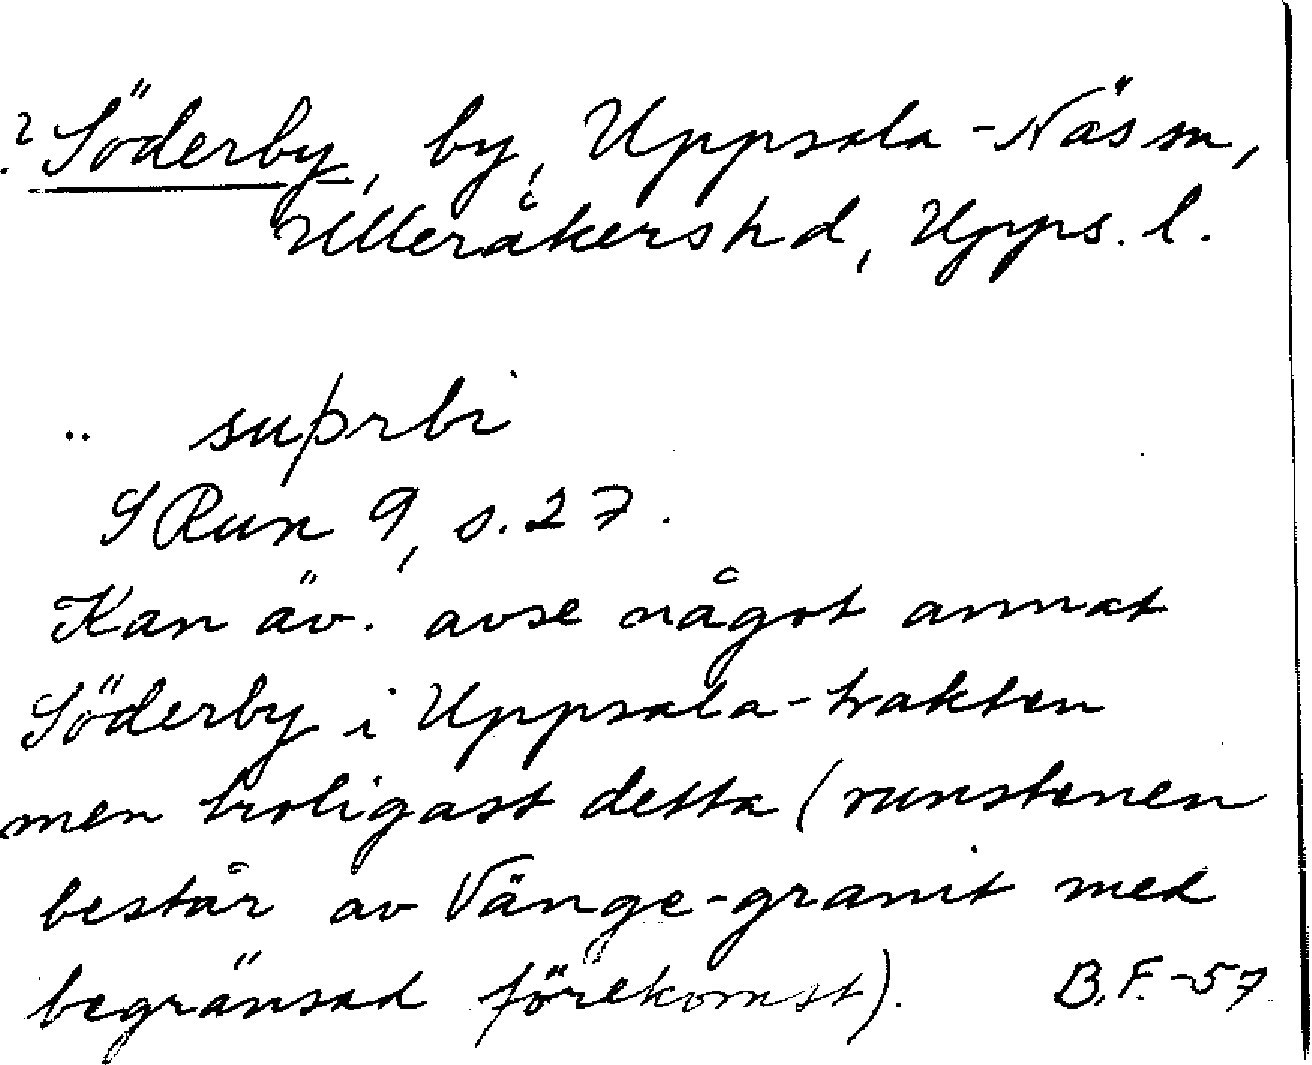 ? Söderby, by, Uppsala-Näs sn,
Ulleråkers hd, Upps. l.
.. suþrbi
SRun 9, s. 27.
Kan äv. avse något annat
Söderby i Uppsala-trakten
men troligast detta (runstenen
består av Vänge-granit med
begränsad förekomst). B.F.-57